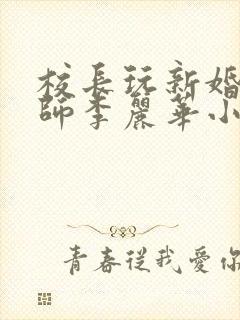 校長玩新婚
師李麗華小
青春從我愛你